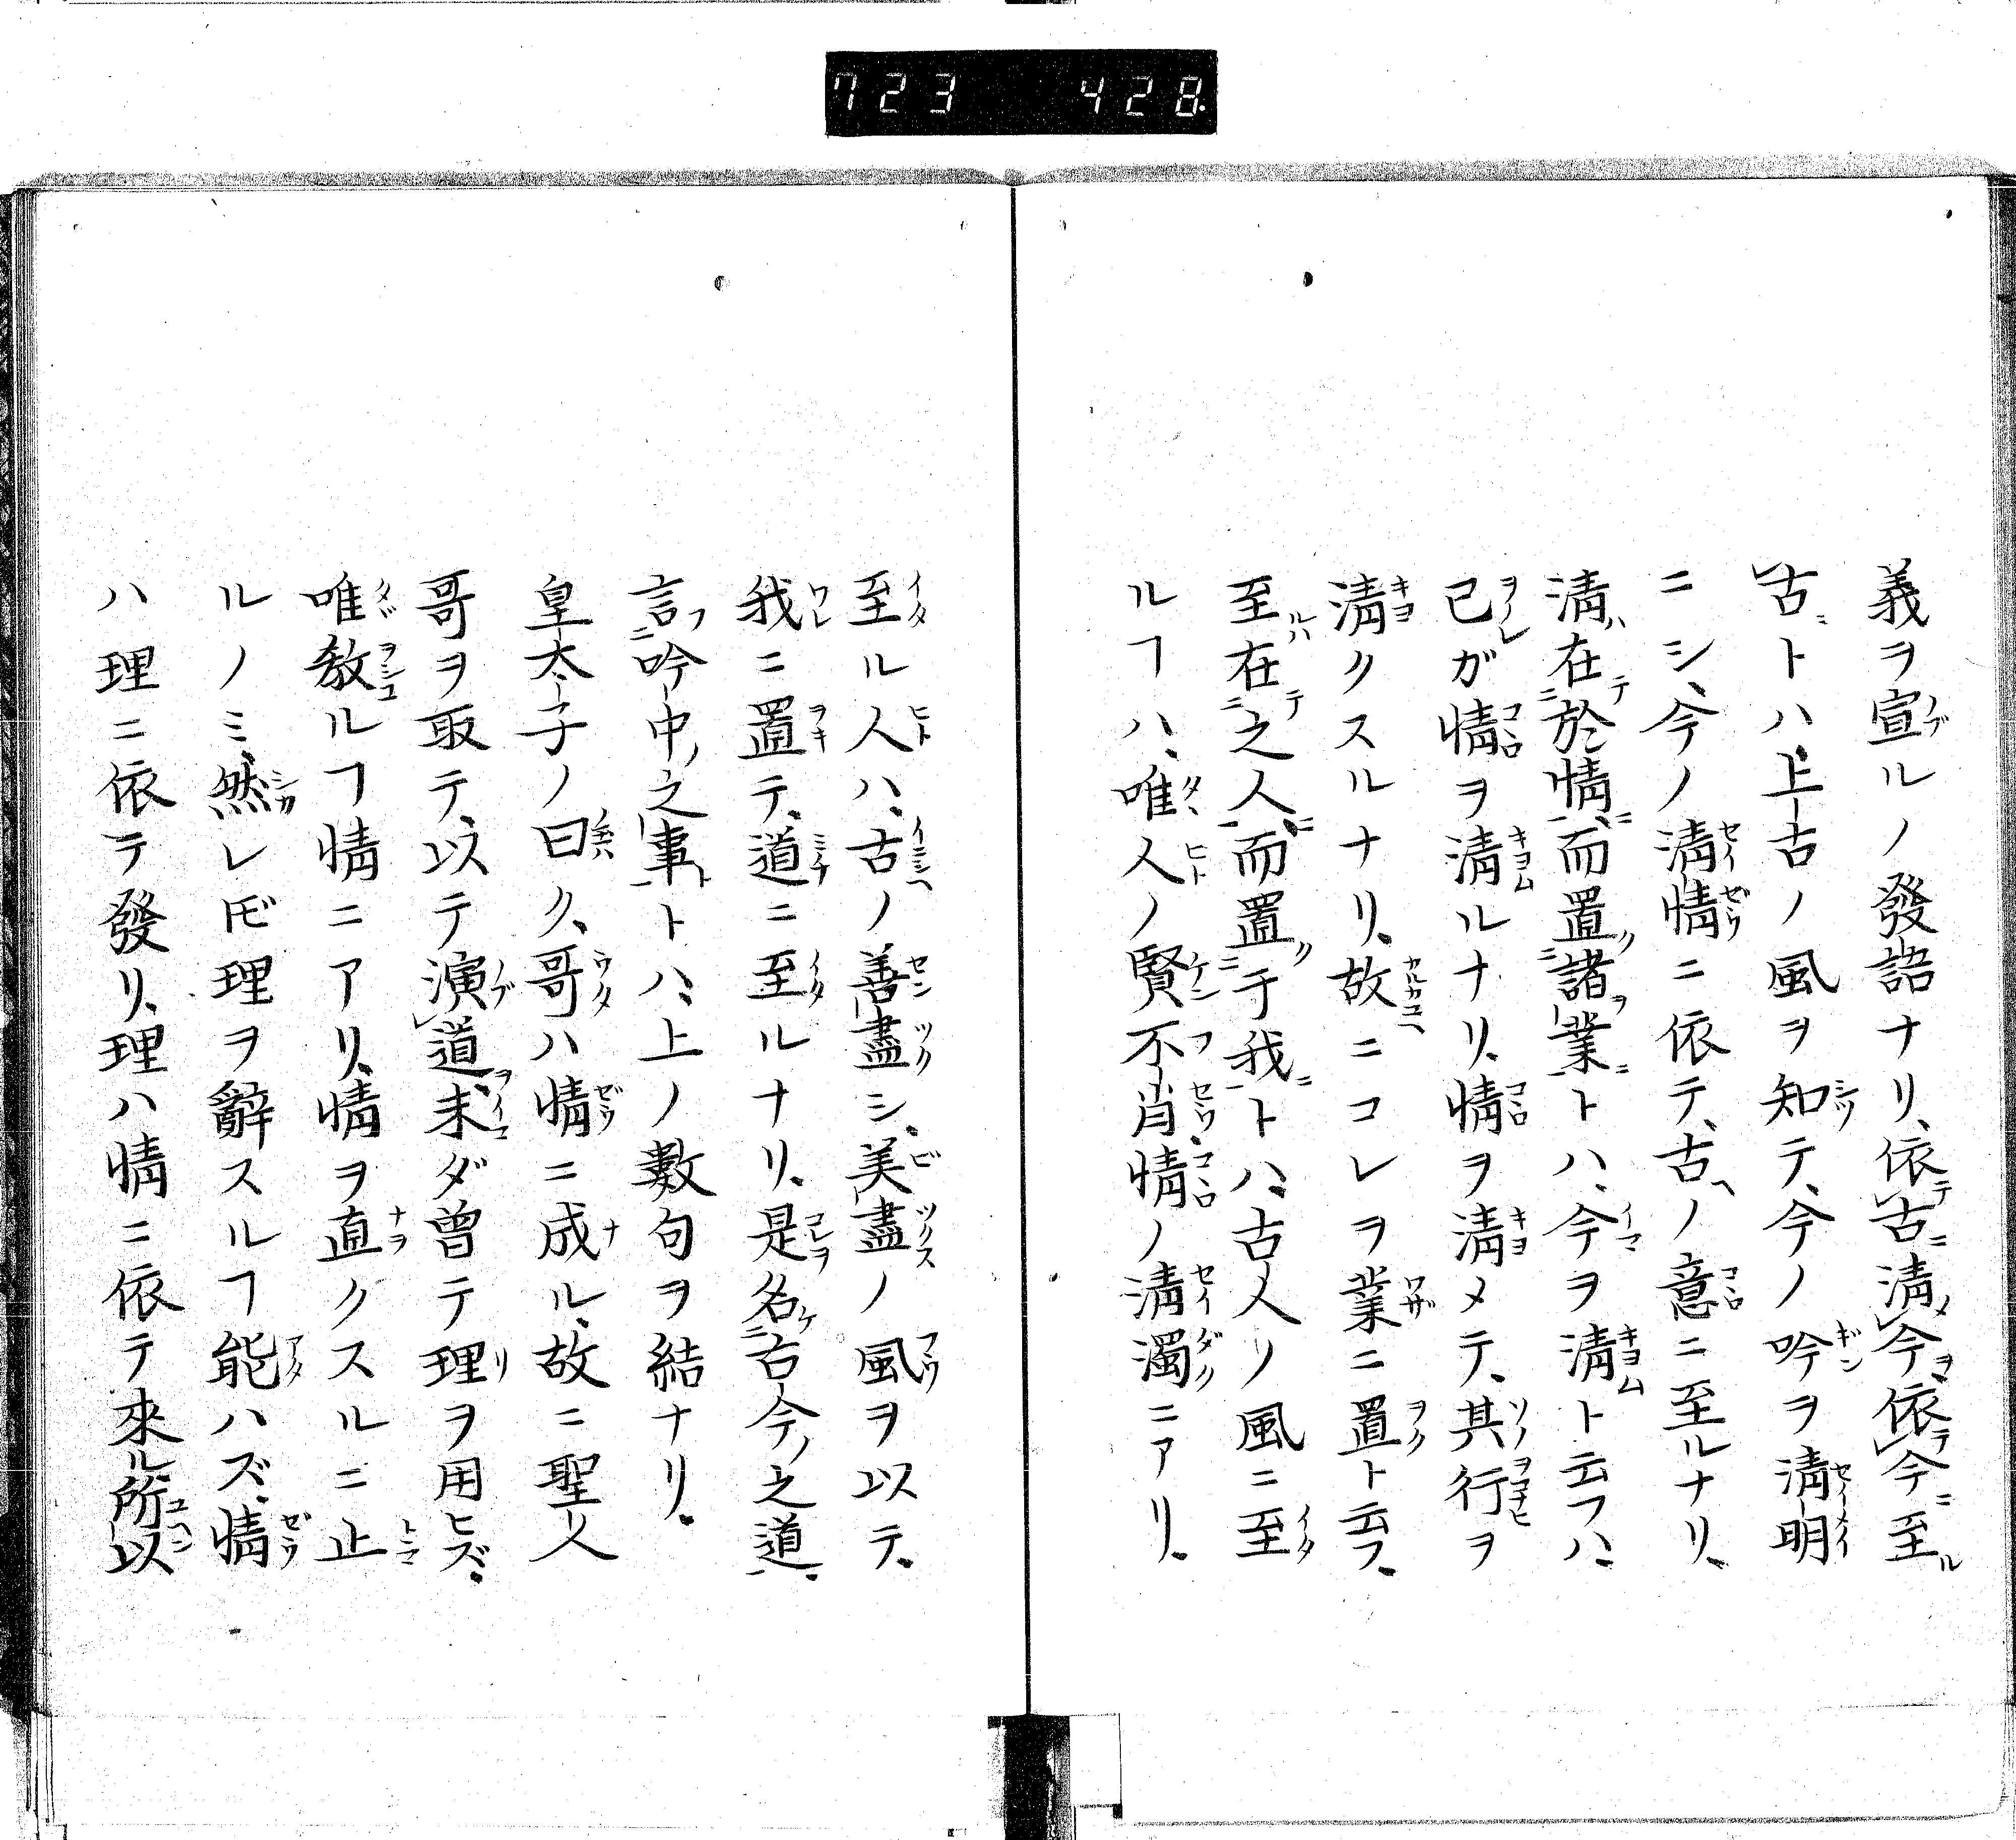 723 428.
義ヲ宣ルノ發語ナリ、依古清今、依今至
古トハ、上古ノ風ヲ知テ、今ノ吟ヲ清明
ニシ、今ノ清情ニ依テ、古ノ意ニ至ルナリ、
清在於情、而置諸業トハ、今ヲ清ト云フハ、
己ガ情ヲ清ルナリ、情ヲ清メテ、其行ヲ
清クスルナリ、故ニコレヲ業ニ置ト云フ、
至在之人、而置于我トハ、古人ノ風ニ至
ルヿハ、唯人ノ賢不肖情ノ清濁ニアリ、
至ル人ハ、古ノ善盡シ、美盡ノ風ヲ以テ、
我ニ置テ、道ニ至ルナリ、是名古今之道、
言吟中之事トハ、上ノ數句ヲ結ナリ、
皇太子ノ曰ク、哥ハ情ニ成ル、故ニ聖人
哥ヲ取テ、以テ演道、未ダ曽テ理ヲ用ヒズ、
唯教ルヿ情ニアリ、情ヲ直クスルニ止
ルノミ、然レ𪜈理ヲ辭スルヿ能ハズ、情
ハ理ニ依テ發リ、理ハ情ニ依テ來ル、所以